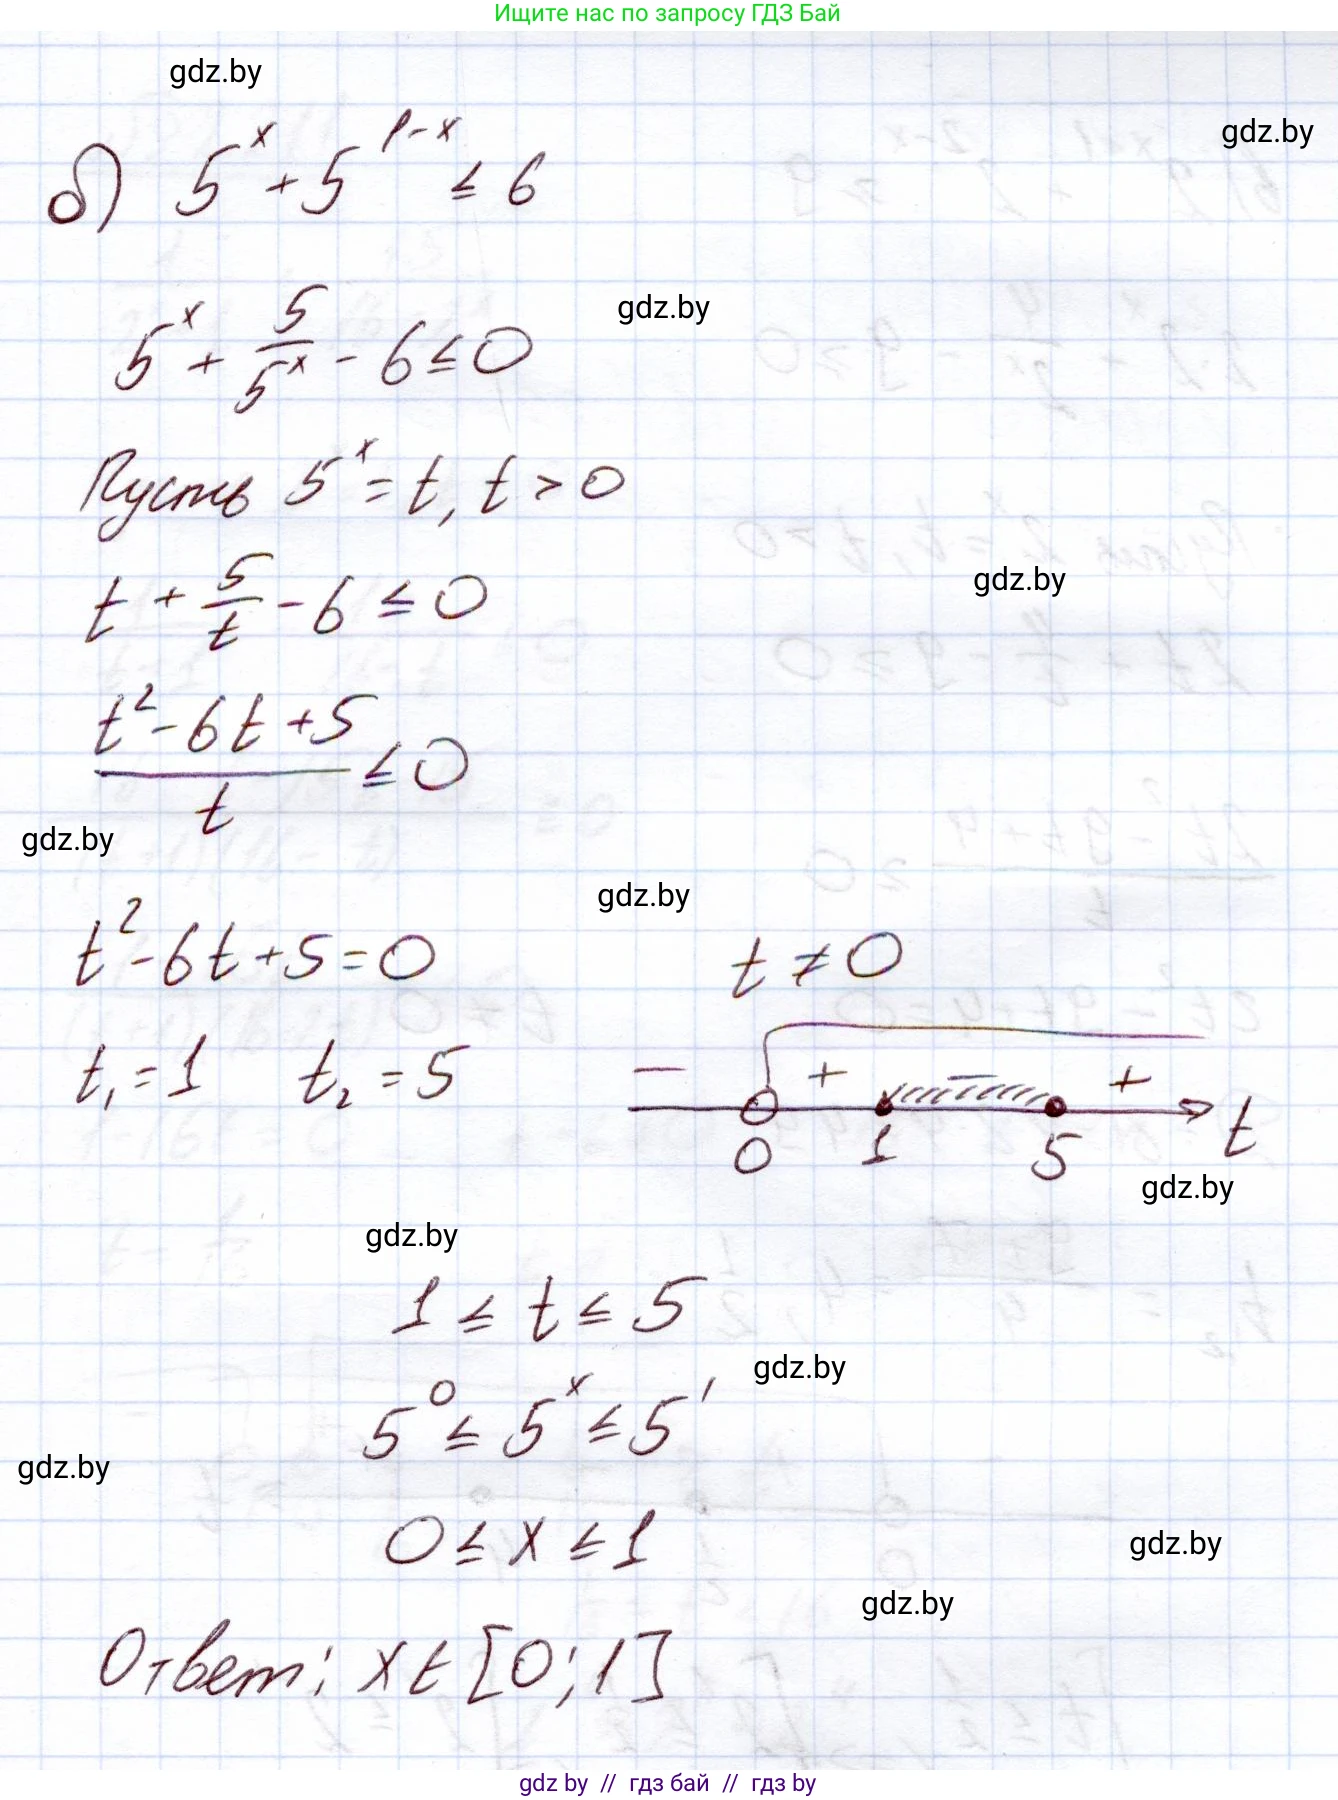 Ищите нас по запросу ГДЗ Бай
gdz.by
gdz.by
б) 5^x + 5^{1-x} ≤ 6
gdz.by
5^x + 5/5^x - 6 ≤ 0
Пусть 5^x = t, t > 0
gdz.by
t + 5/t - 6 ≤ 0
(t² - 6t + 5)/t ≤ 0
gdz.by
gdz.by
t² - 6t + 5 = 0
t ≠ 0
t₁ = 1 t₂ = 5
− + − +
0 1 5 t
gdz.by
gdz.by
1 ≤ t ≤ 5
gdz.by
5^0 ≤ 5^x ≤ 5^1
gdz.by
0 ≤ x ≤ 1
gdz.by
gdz.by
Ответ: x ∈ [0; 1]
gdz by // гдз бай // гдз by